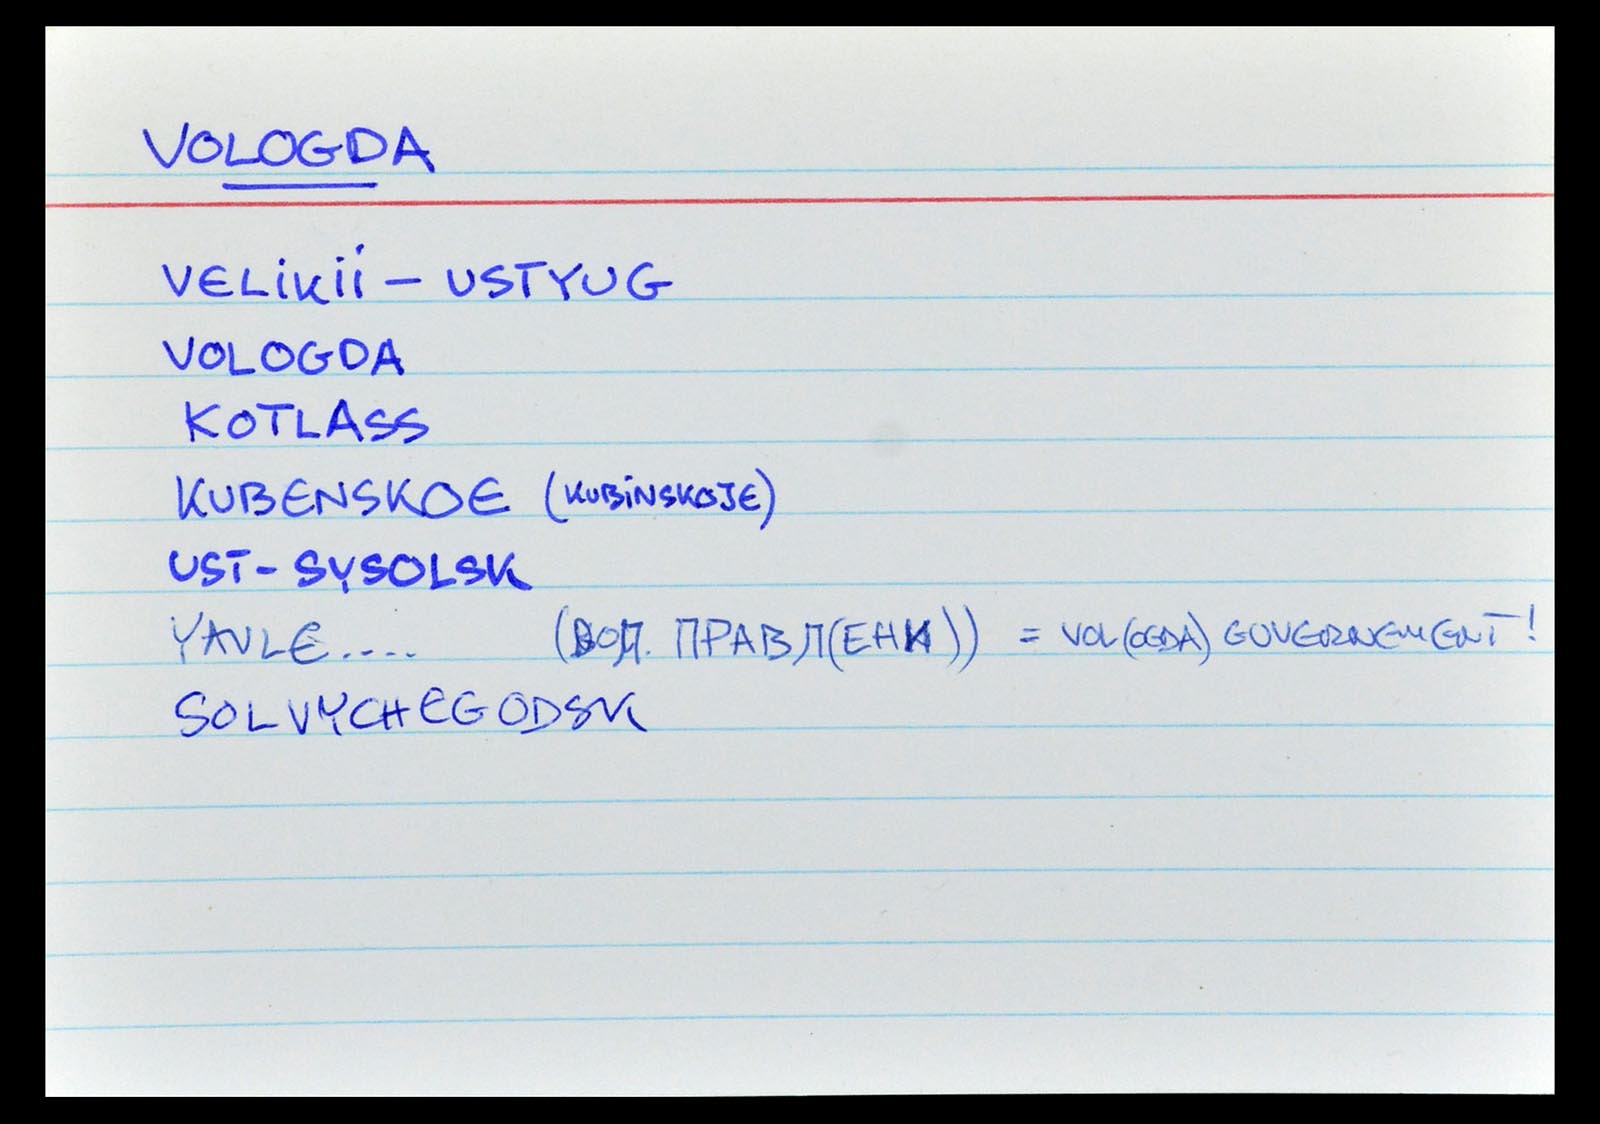 VOLOGDA
VELIKII - USTYUG
VOLOGDA
KOTLASS
KUBENSKOE (KUBINSKOJE)
UST-SYSOLSK
YAVLE.... (ВОЛ. ПРАВЛ(ЕНИ)) = VOL(OGDA) GOUVERNEMENT!
SOLVYCHEGODSK